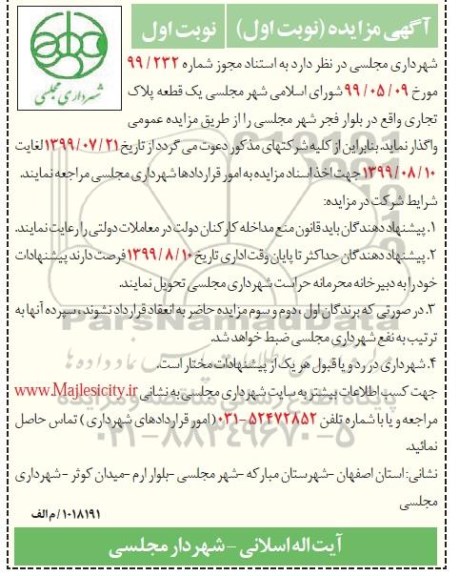 آگهی مزایده (نوبت اول)
نوبت اول
شهرداری مجلسی
شهرداری مجلسی در نظر دارد به استناد مجوز شماره ۹۹/۲۳۲
مورخ ۹۹/۰۵/۰۹ شورای اسلامی شهر مجلسی یک قطعه پلاک
تجاری واقع در بلوار فجر شهر مجلسی را از طریق مزایده عمومی
واگذار نماید. بنابراین از کلیه شرکتهای مذکور دعوت می گردد از تاریخ ۱۳۹۹/۰۷/۲۱ لغایت
۱۳۹۹/۰۸/۱۰ جهت اخذ اسناد مزایده به امور قراردادها شهرداری مجلسی مراجعه نمایند.
شرایط شرکت در مزایده:
۱. پیشنهاد دهندگان باید قانون منع مداخله کارکنان دولت در معاملات دولتی را رعایت نمایند.
۲. پیشنهاد دهندگان حداکثر تا پایان وقت اداری تاریخ ۱۳۹۹/۸/۱۰ فرصت دارند پیشنهادات
خود را به دبیرخانه محرمانه حراست شهرداری مجلسی تحویل نمایند.
۳. در صورتی که برندگان اول ، دوم و سوم مزایده حاضر به انعقاد قرارداد نشوند ، سپرده آنها به
ترتیب به نفع شهرداری مجلسی ضبط خواهد شد.
۴. شهرداری در رد و یا قبول هر یک از پیشنهادات مختار است.
جهت کسب اطلاعات بیشتر به سایت شهرداری مجلسی به نشانی www.Majlesicity.ir
مراجعه و یا با شماره تلفن ۵۲۴۷۲۸۵۲-۰۳۱ (امور قراردادهای شهرداری) تماس حاصل
نمائید.
نشانی: استان اصفهان -شهرستان مبارکه -شهر مجلسی -بلوار ارم -میدان کوثر - شهرداری
مجلسی
۱۰۱۸۱۹۱/م الف
آیت اله اسلانی - شهردار مجلسی
ParsNamadData
۰۲۱-۸۸۳۴۹۶۷۰-۵